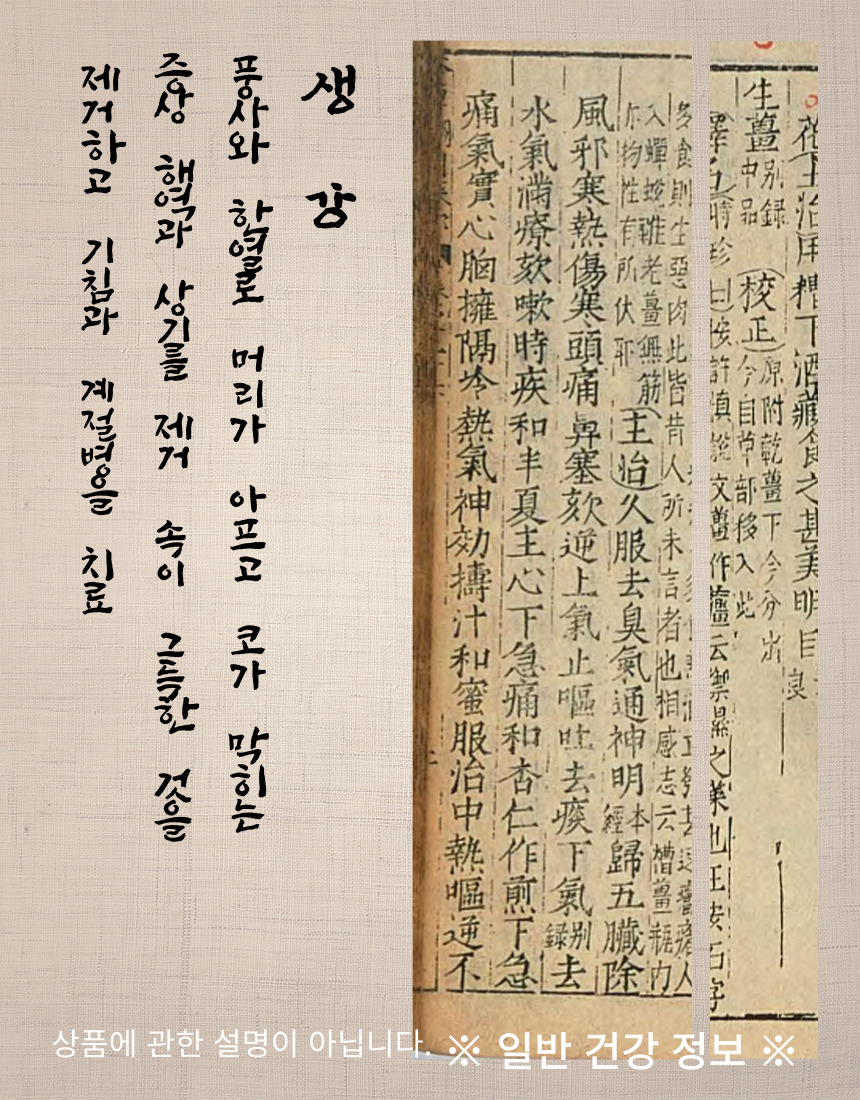 생강
풍사와 한열로 머리가 아프고 코가 막히는
증상 해역과 상기를 제거 속이 그득한 것을
제거하고 기침과 계절병을 치료
生薑 別錄中品 校正 原附乾薑下今分出今自草部移入此
多食則生惡肉此皆昔人所未言者也相感志云糟薑瓶內
入蟬蛻雖老薑無筋
亦物性有所伏耶
主治 久服去臭氣通神明 本經 歸五臟除
風邪寒熱傷寒頭痛鼻塞欬逆上氣止嘔吐去痰下氣 別錄 去
水氣滿療欬嗽時疾和半夏主心下急痛和杏仁作煎下急
痛氣實心胸擁隔冷熱氣神効擣汁和蜜服治中熱嘔逆不
상품에 관한 설명이 아닙니다. ※ 일반 건강 정보 ※